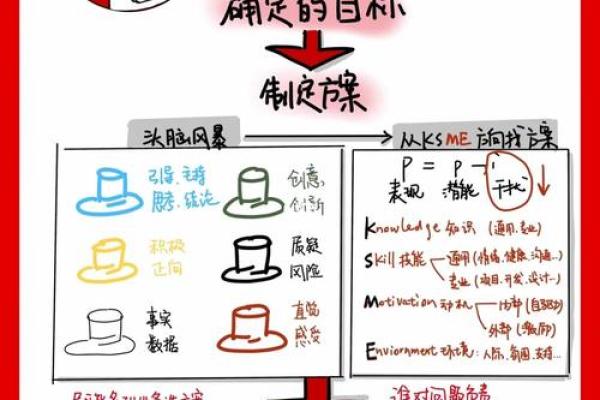 确定的目标
制定方案
头脑风暴
从KSME方向找方案
引导、主持
思考、结论
创意、
创新
积极
正向
质疑
风险
事实
数据
直觉
感受
P = p - i
表现 潜能 干扰
Knowledge 知识 (通用、专业)
Skill 技能
通用 (情绪、健康、沟通...)
专业 (项目、开发、设计...)
Motivation 动机
内部 (自驱力)
外部
Enviornment 环境: 人际、氛围、支持...
谁对问题负责